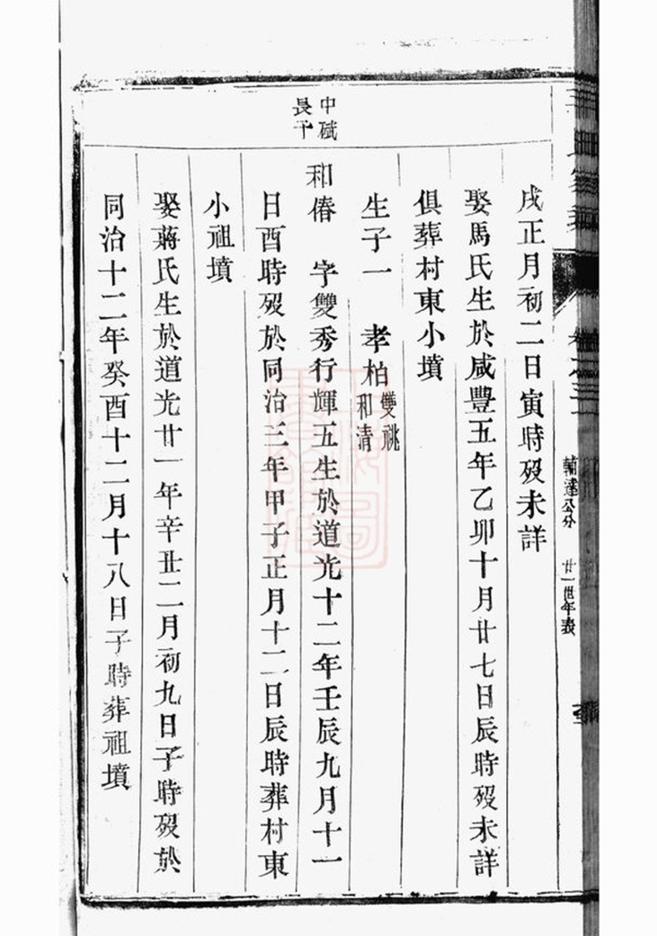 輔達公分 廿一世年表
戌正月初二日寅時歿未詳
娶馬氏生於咸豐五年乙卯十月廿七日辰時歿未詳
俱葬村東小墳
生子一 孝柏 雙祧和清
中斌長子
和偆 字雙秀行輝五生於道光十二年壬辰九月十一
日酉時歿於同治三年甲子正月十二日辰時葬村東
小祖墳
娶蔣氏生於道光廿一年辛丑二月初九日子時歿於
同治十二年癸酉十二月十八日子時葬祖墳